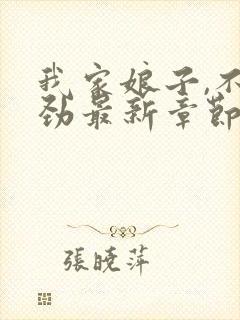 我家娘子,不
劲最新章節
張曉萍